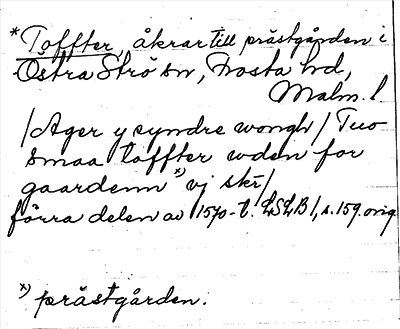 * Toffter, åkrar till prästgården i
Östra Strö sn, Frosta hd,
Malm. l.
/Ager y syndre wongh/ Tuo
smaa toffter uden for
gaardenn x) vj skr/
förra delen av 1570-t. LSLB 1, s. 159 orig.
x) prästgården.